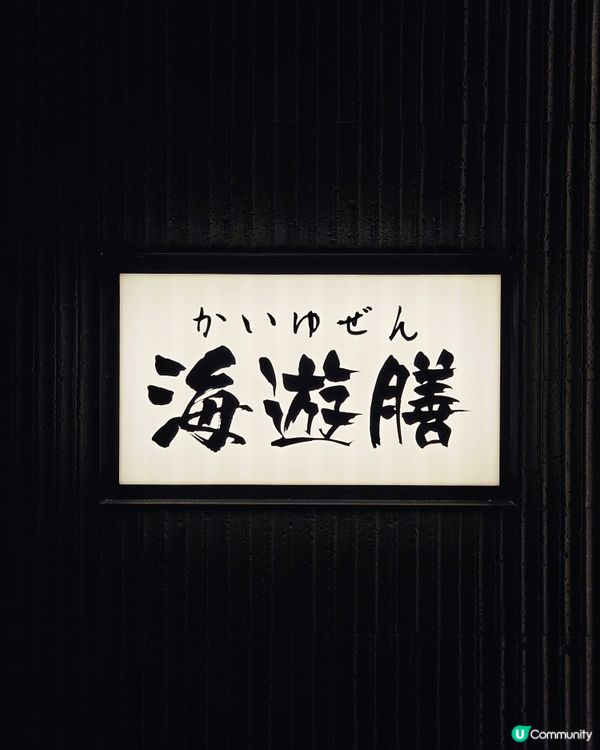 かいゆぜん
海遊膳
U Community